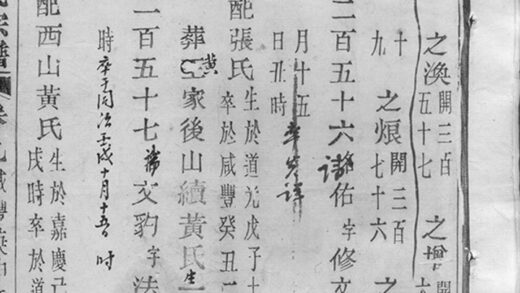 之渙開三百五十七 之增開
十九 之烺開三百七十六 之
二百五十六 佑字修文
月十五日丑時 卒
配張氏生於道光戊子十
卒於咸豐癸丑二
葬黃家後山續黃氏生
一百五十七 文豹字法
時卒于同治壬戌十月十五 時
配西山黃氏生於嘉慶己
戌時卒於道
氏宗譜 卷九